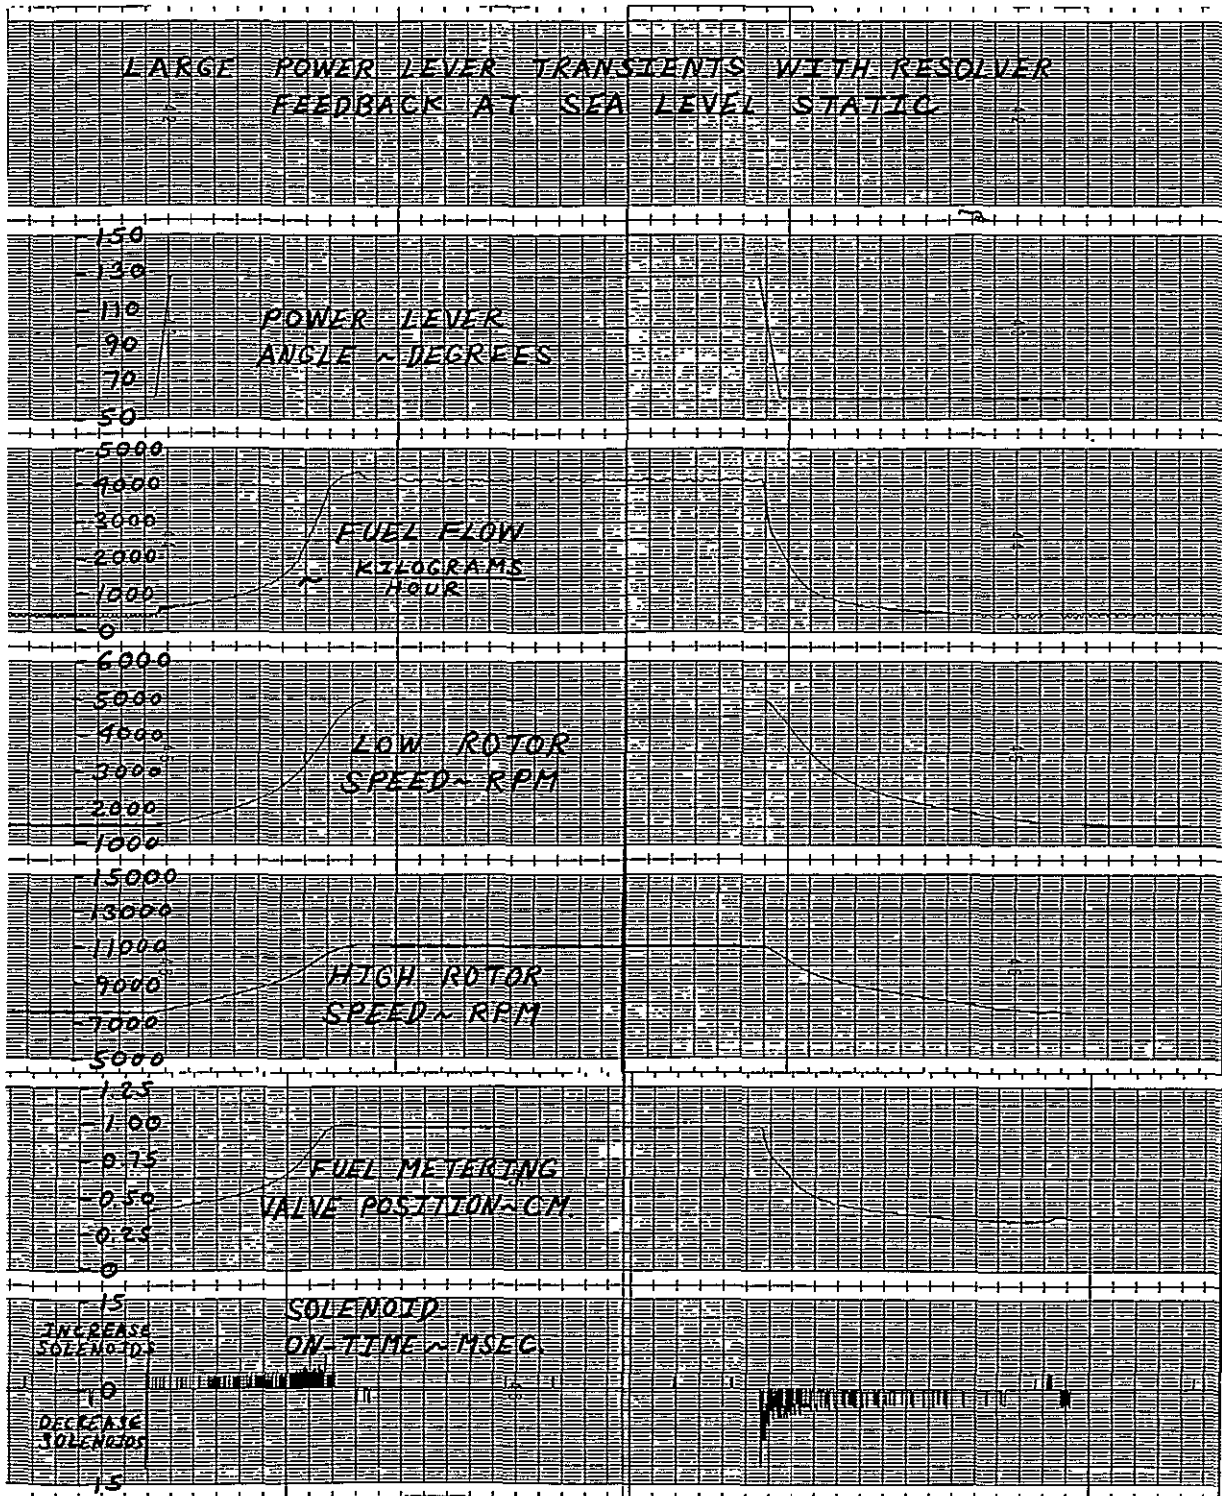 LARGE POWER LEVER TRANSIENTS WITH RESOLVER
FEEDBACK AT SEA LEVEL STATIC
150
130
110
90
70
50
POWER LEVER
ANGLE ~ DEGREES
5000
4000
3000
2000
1000
0
FUEL FLOW
~ KILOGRAMS
HOUR
6000
5000
4000
3000
2000
1000
LOW ROTOR
SPEED ~ RPM
15000
13000
11000
9000
7000
5000
HIGH ROTOR
SPEED ~ RPM
1.25
1.00
0.75
0.50
0.25
0
FUEL METERING
VALVE POSITION ~ CM.
15
INCREASE
SOLENOIDS
0
DECREASE
SOLENOIDS
15
SOLENOID
ON-TIME ~ MSEC.